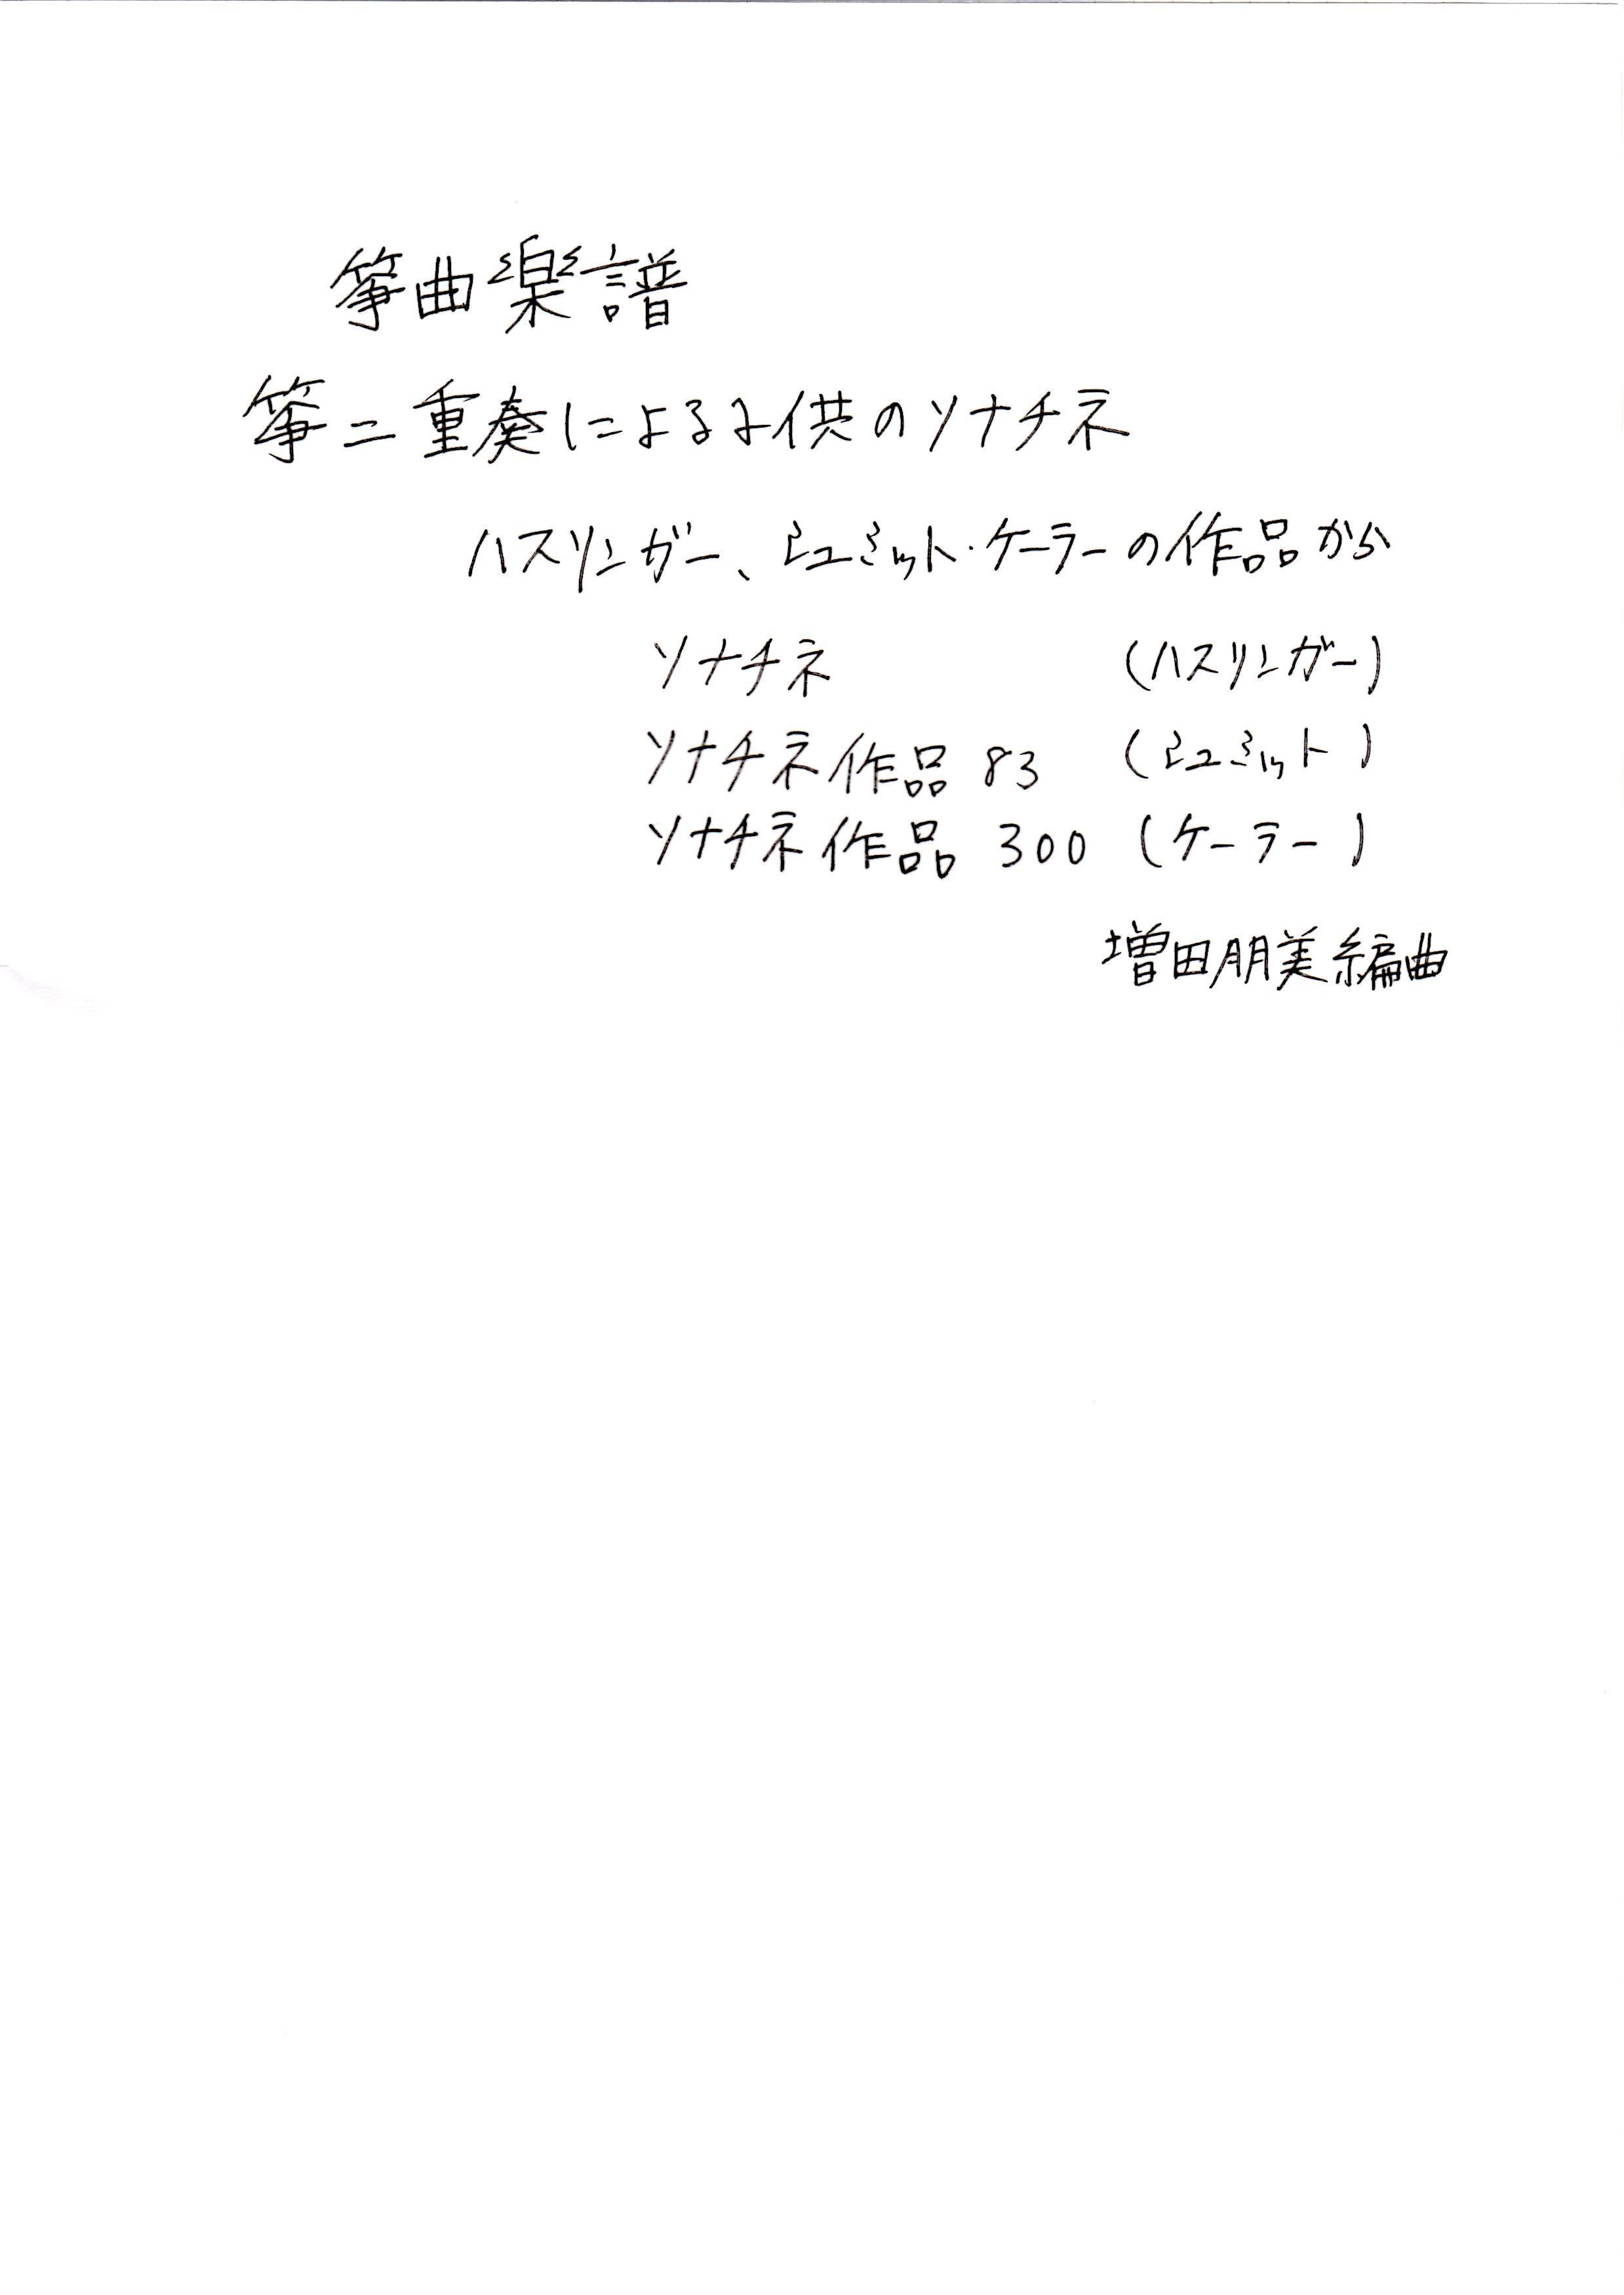 箏曲楽譜
箏二重奏による子供のソナチネ
ハスリンガー、シュミット・ケーラーの作品から
ソナチネ (ハスリンガー)
ソナチネ作品 83 (シュミット)
ソナチネ作品 300 (ケーラー)
増田朋美編曲